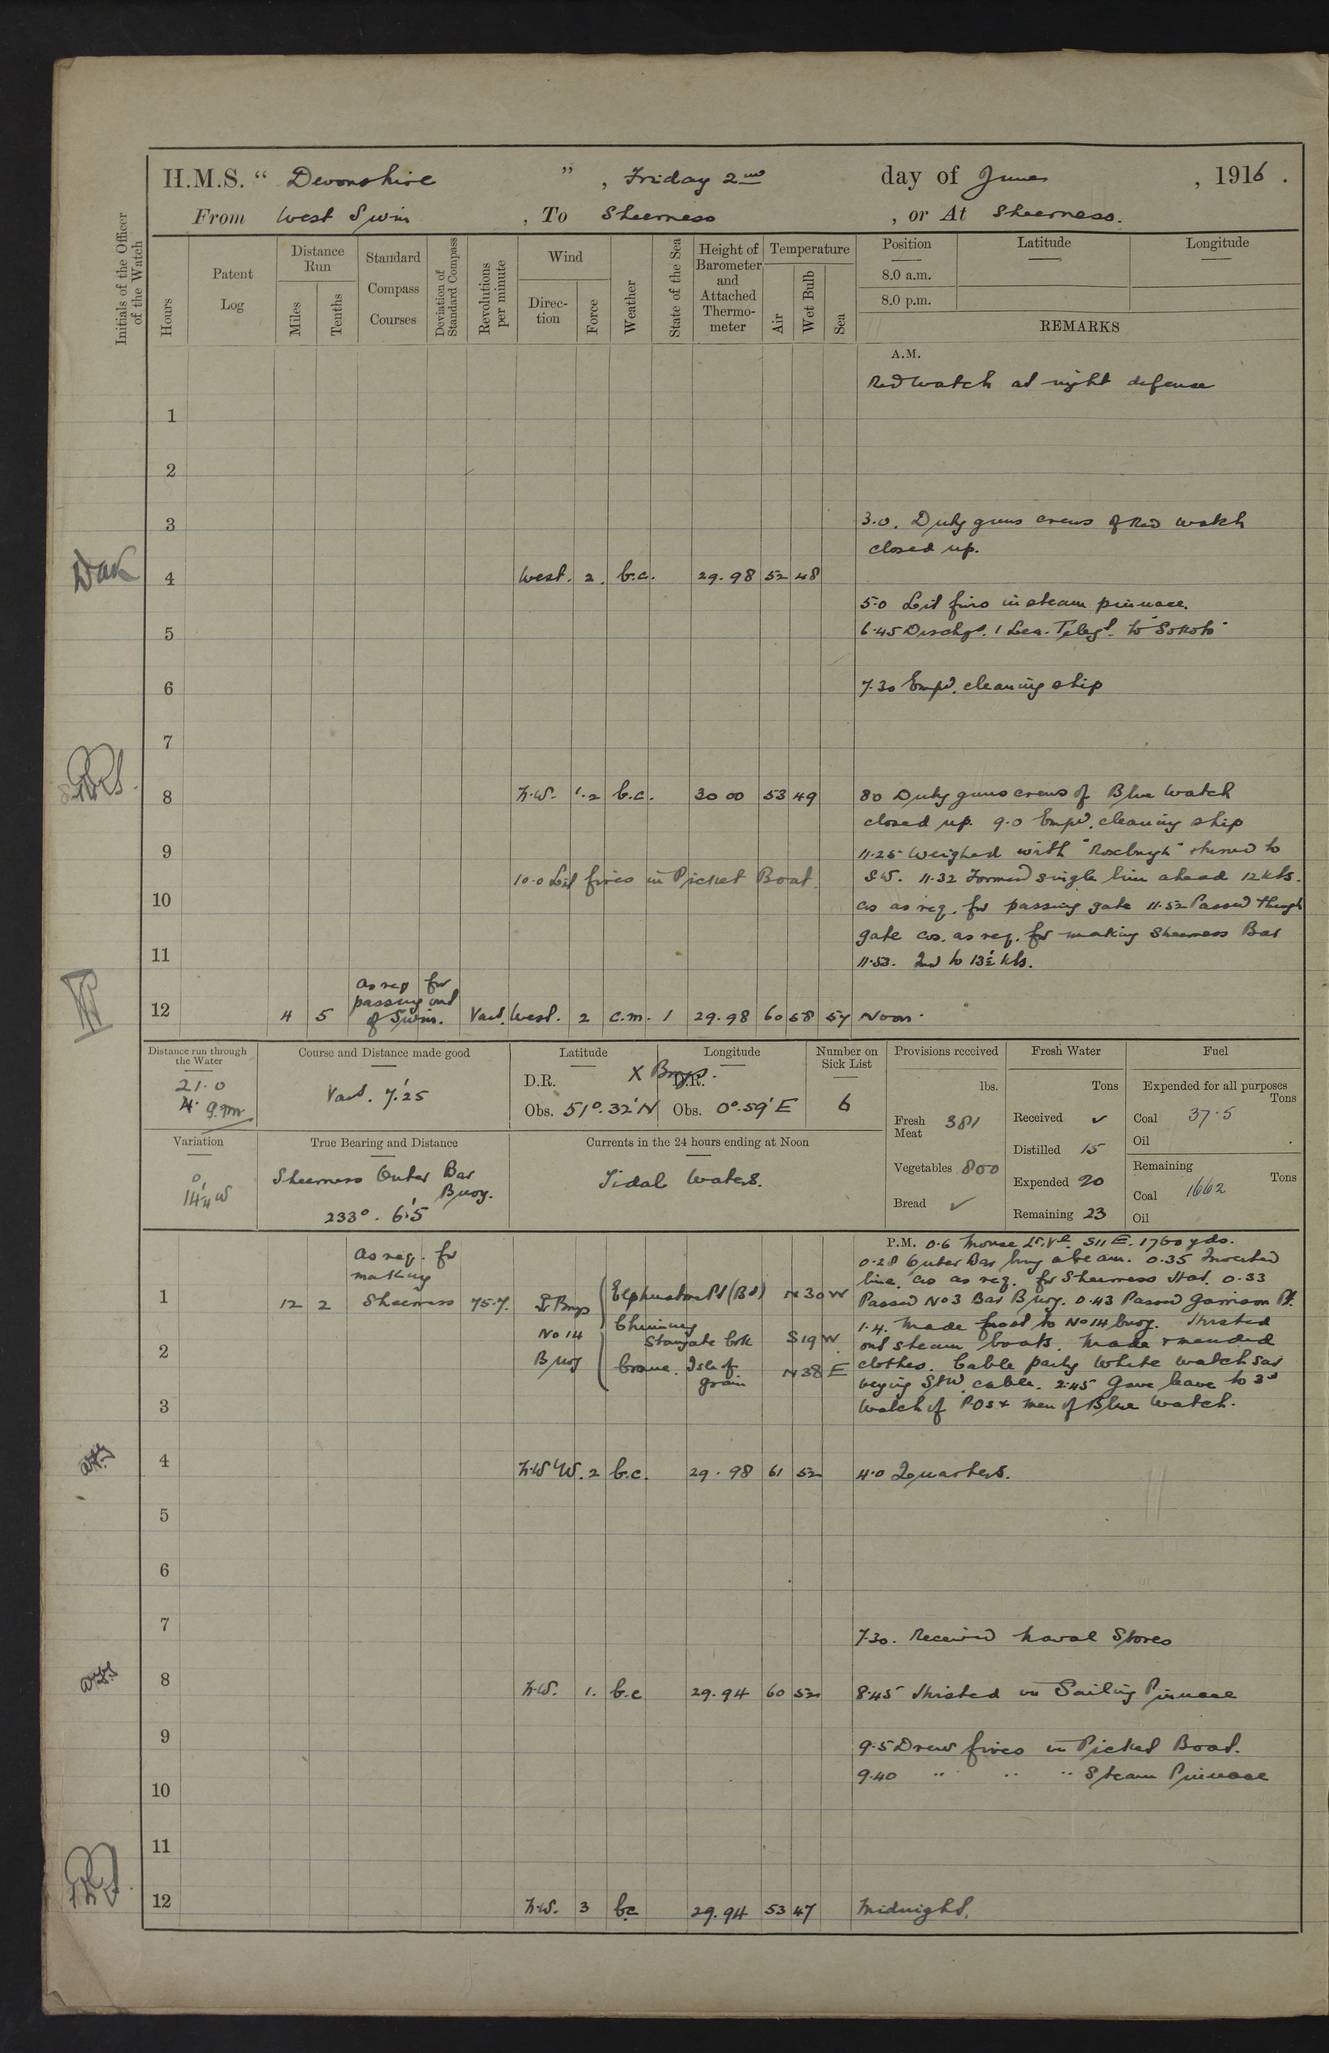 H.M.S. " Devonshire " , Friday 2nd day of June , 1916 .
From West Swin , To Sheerness , or At Sheerness.
Initials of the Officer of the Watch
Hours
Patent Log
Distance Run
Miles
Tenths
Standard Compass Courses
Deviation of Standard Compass
Revolutions per minute
Wind
Direction
Force
Weather
State of the Sea
Height of Barometer and Attached Thermometer
Temperature
Air
Wet Bulb
Sea
Position
Latitude
Longitude
8.0 a.m.
8.0 p.m.
REMARKS
A.M.
Red Watch at night defence
1
2
3
3.0. Duty guns crews of Red watch
closed up.
4 West. 2. b.c. 29.98 52 48
5.0 Lit fires in steam pinnace.
5
6.45 Dischgd. 1 Lea. Telegt. to "Sokoto"
6
7.30 Empd. cleaning ship
7
8 N.W. 1.2 b.c. 30 00 53 49 8 0 Duty guns crews of Blue Watch
closed up. 9.0 Empd. cleaning ship
9
11.25 Weighed with "Roxburgh" & turned to
10.0 Lit fires in Picket Boat
SW. 11.32 Formed single line ahead 12 kts.
10
Co as req. for passing gate 11.52 Passed through
gate Cos. as req. for making Sheerness Bar
11
11.53. Incd to 13½ kts.
12 4 5 as req for passing out of Swin. Vard. West. 2 c.m. 1 29.98 60 58 54 Noon.
Distance run through the Water
21.0
Course and Distance made good
Vard. 7.'25
Latitude
D.R.
Obs. 51°. 32' N
Longitude
X Brgs.
D.R.
Obs. 0°. 59' E
Number on Sick List
6
Provisions received
lbs.
Fresh Meat 381
Vegetables 800
Bread ✓
Fresh Water
Tons
Received ✓
Distilled 15
Expended 20
Remaining 23
Fuel
Expended for all purposes
Tons
Coal 37.5
Oil
Remaining
Tons
Coal 1662
Oil
Variation
14¼ W
True Bearing and Distance
Sheerness Outer Bar Buoy.
233°. 6.'5
Currents in the 24 hours ending at Noon
Tidal Waters.
P.M. 0.6 Mouse Lt. Vl. S11E. 1760 yds.
0.28 Outer Bar buoy abeam. 0.35 Inverted
line. Co as req. for Sheerness Har. 0.33
as req. for making
1 12 2 Sheerness 75.7. Brgs Elphinstone Pt (Bd) N30W
Passed No 3 Bar Buoy. 0.43 Passed Garrison Pt.
1.4. Made fast to No 14 buoy. Hoisted
No 14 Buoy
Chimney Stangate Crk S19W
2
out steam boats. Made & mended
Crane. Isle of Grain N38E
clothes. Cable party White watch
cable. 2.45 Gave leave to 3rd
3
Watch of POs & men of Blue Watch.
4 NW'W. 2 b.c. 29.98 61 52 4.0 Quarters.
5
6
7
7.30. Received Naval Stores
8 N.W. 1. b.c 29.94 60 52 8.45 Hoisted in Sailing Pinnace
9
9.5 Drew fires in Picket Boat.
9.40 " " " Steam Pinnace
10
11
12 N.W. 3 bc 29.94 53 47 Midnight.